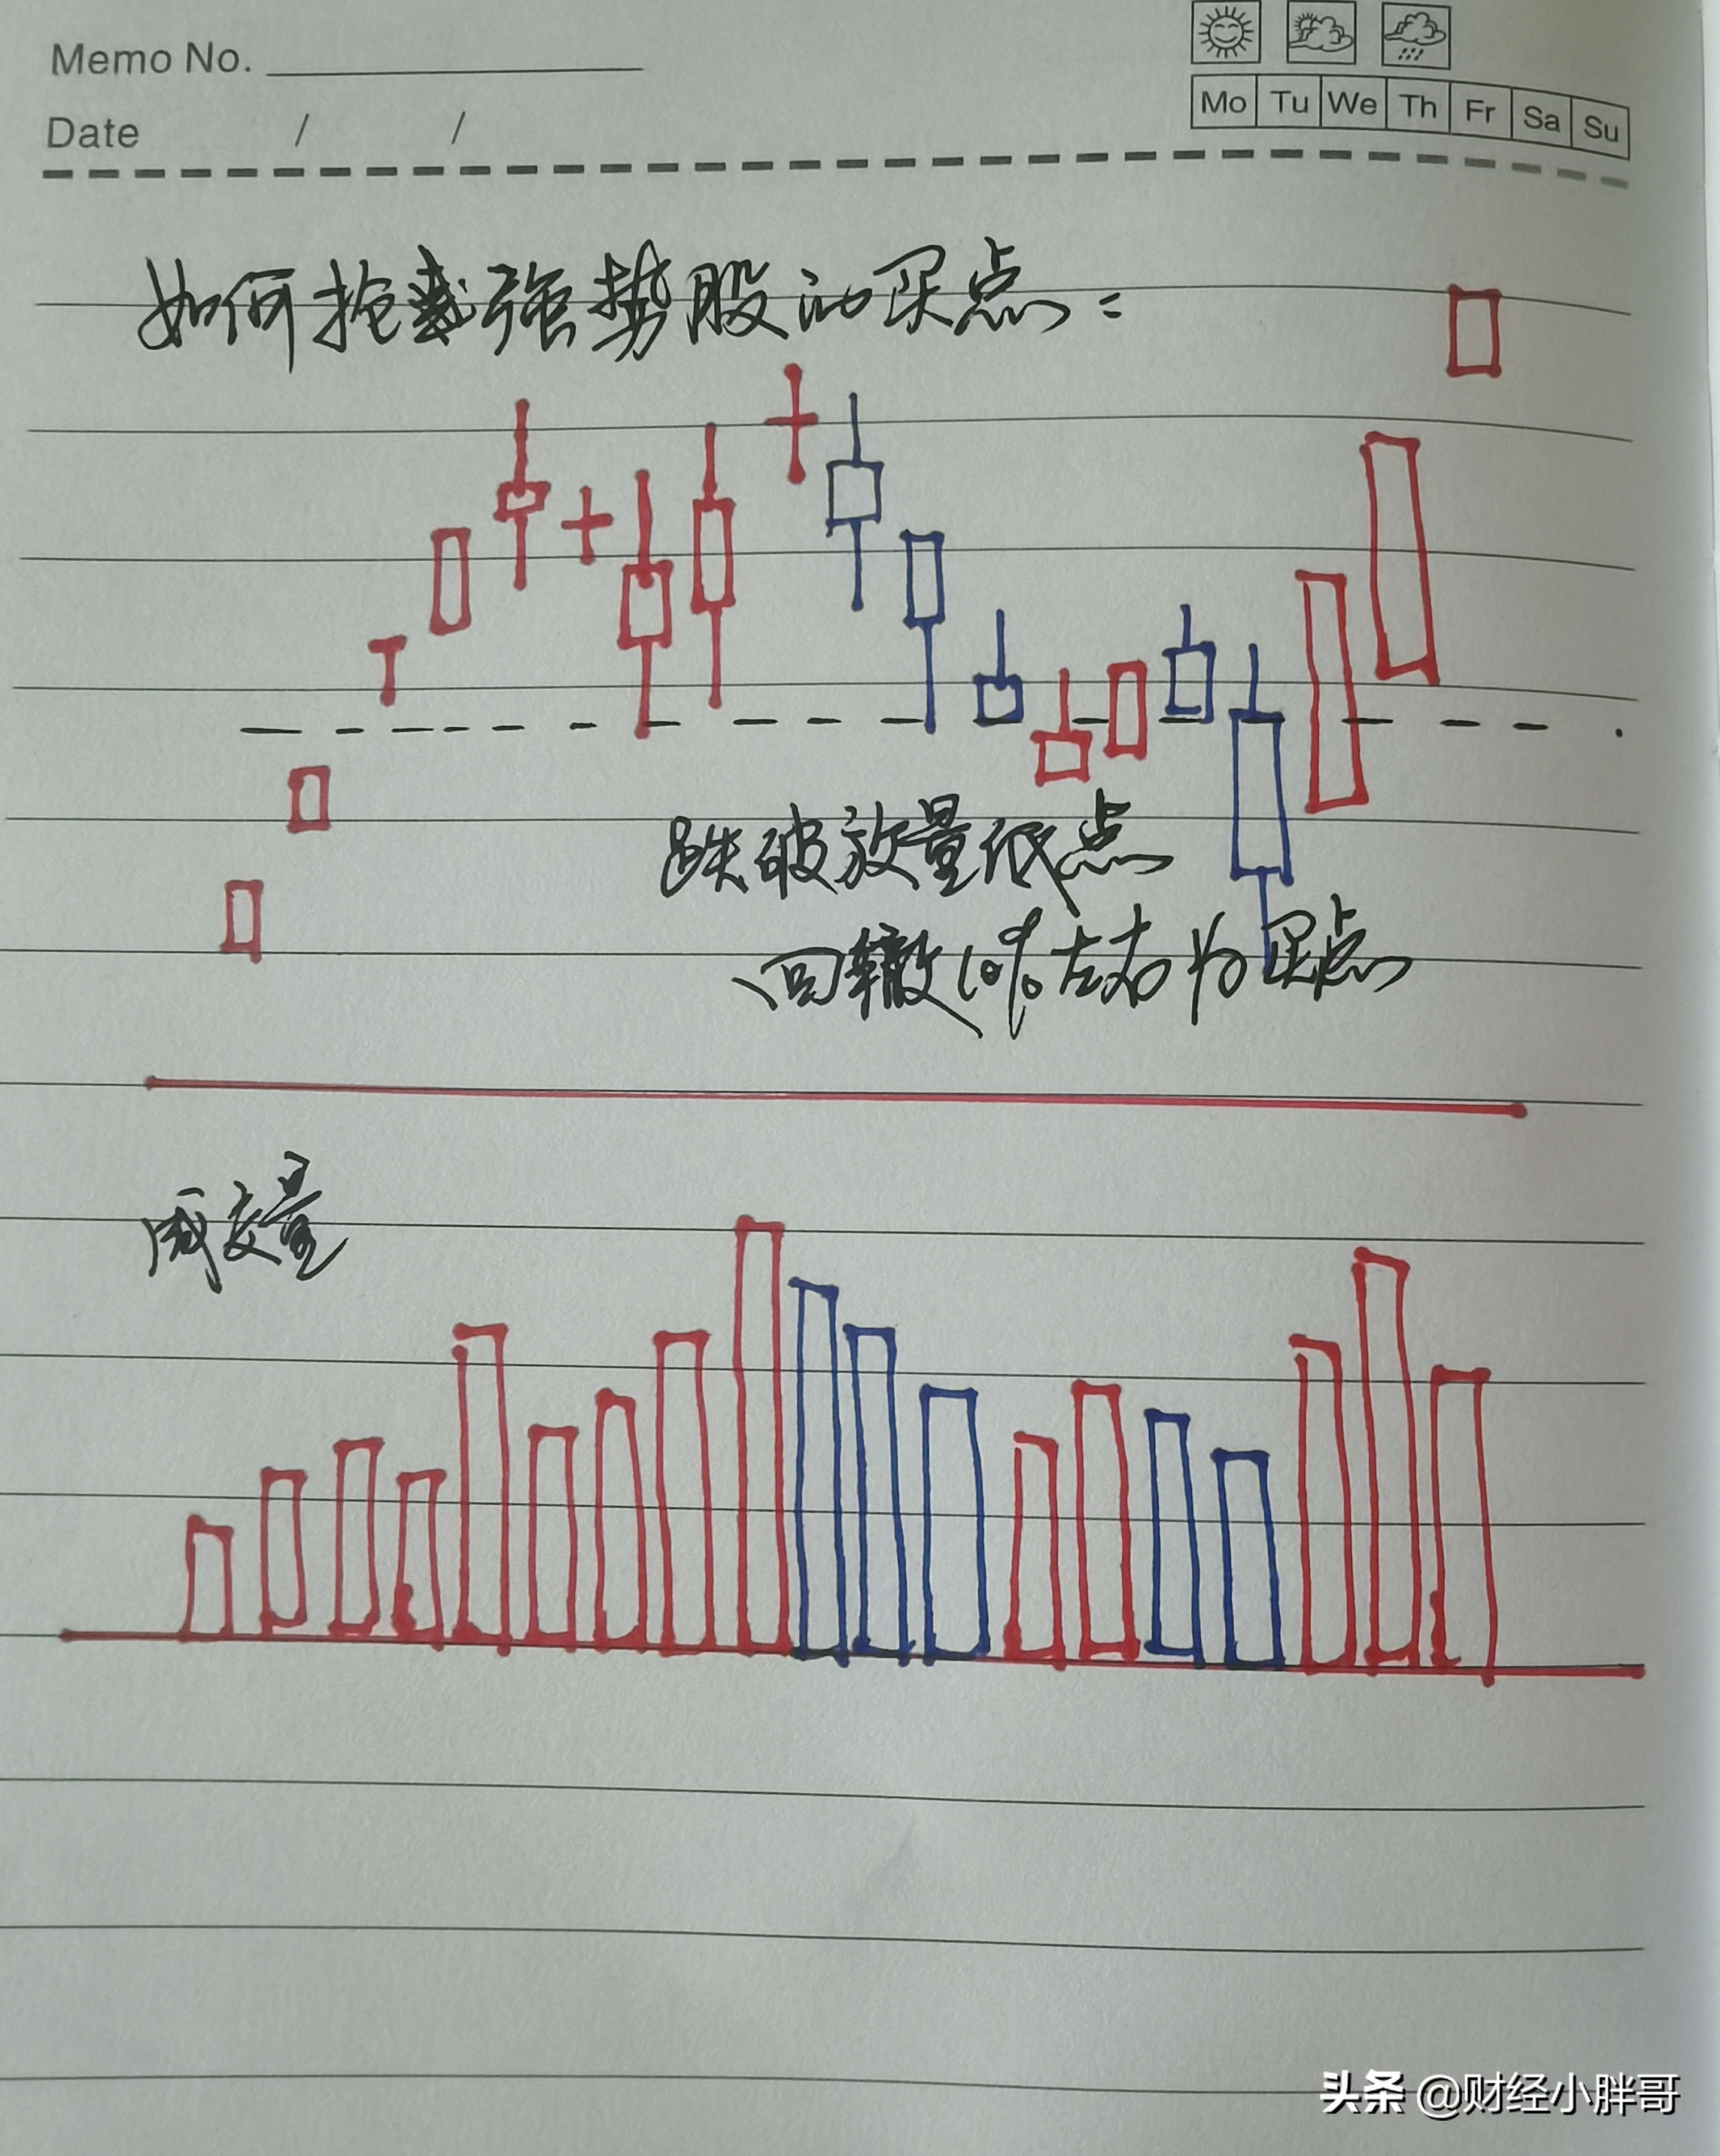 Memo No.
Date / /
Mo Tu We Th Fr Sa Su
如何抢裁强势股的买点：
跌破放量低点
回辙10%左右为买点
成交量
头条 @财经小胖哥